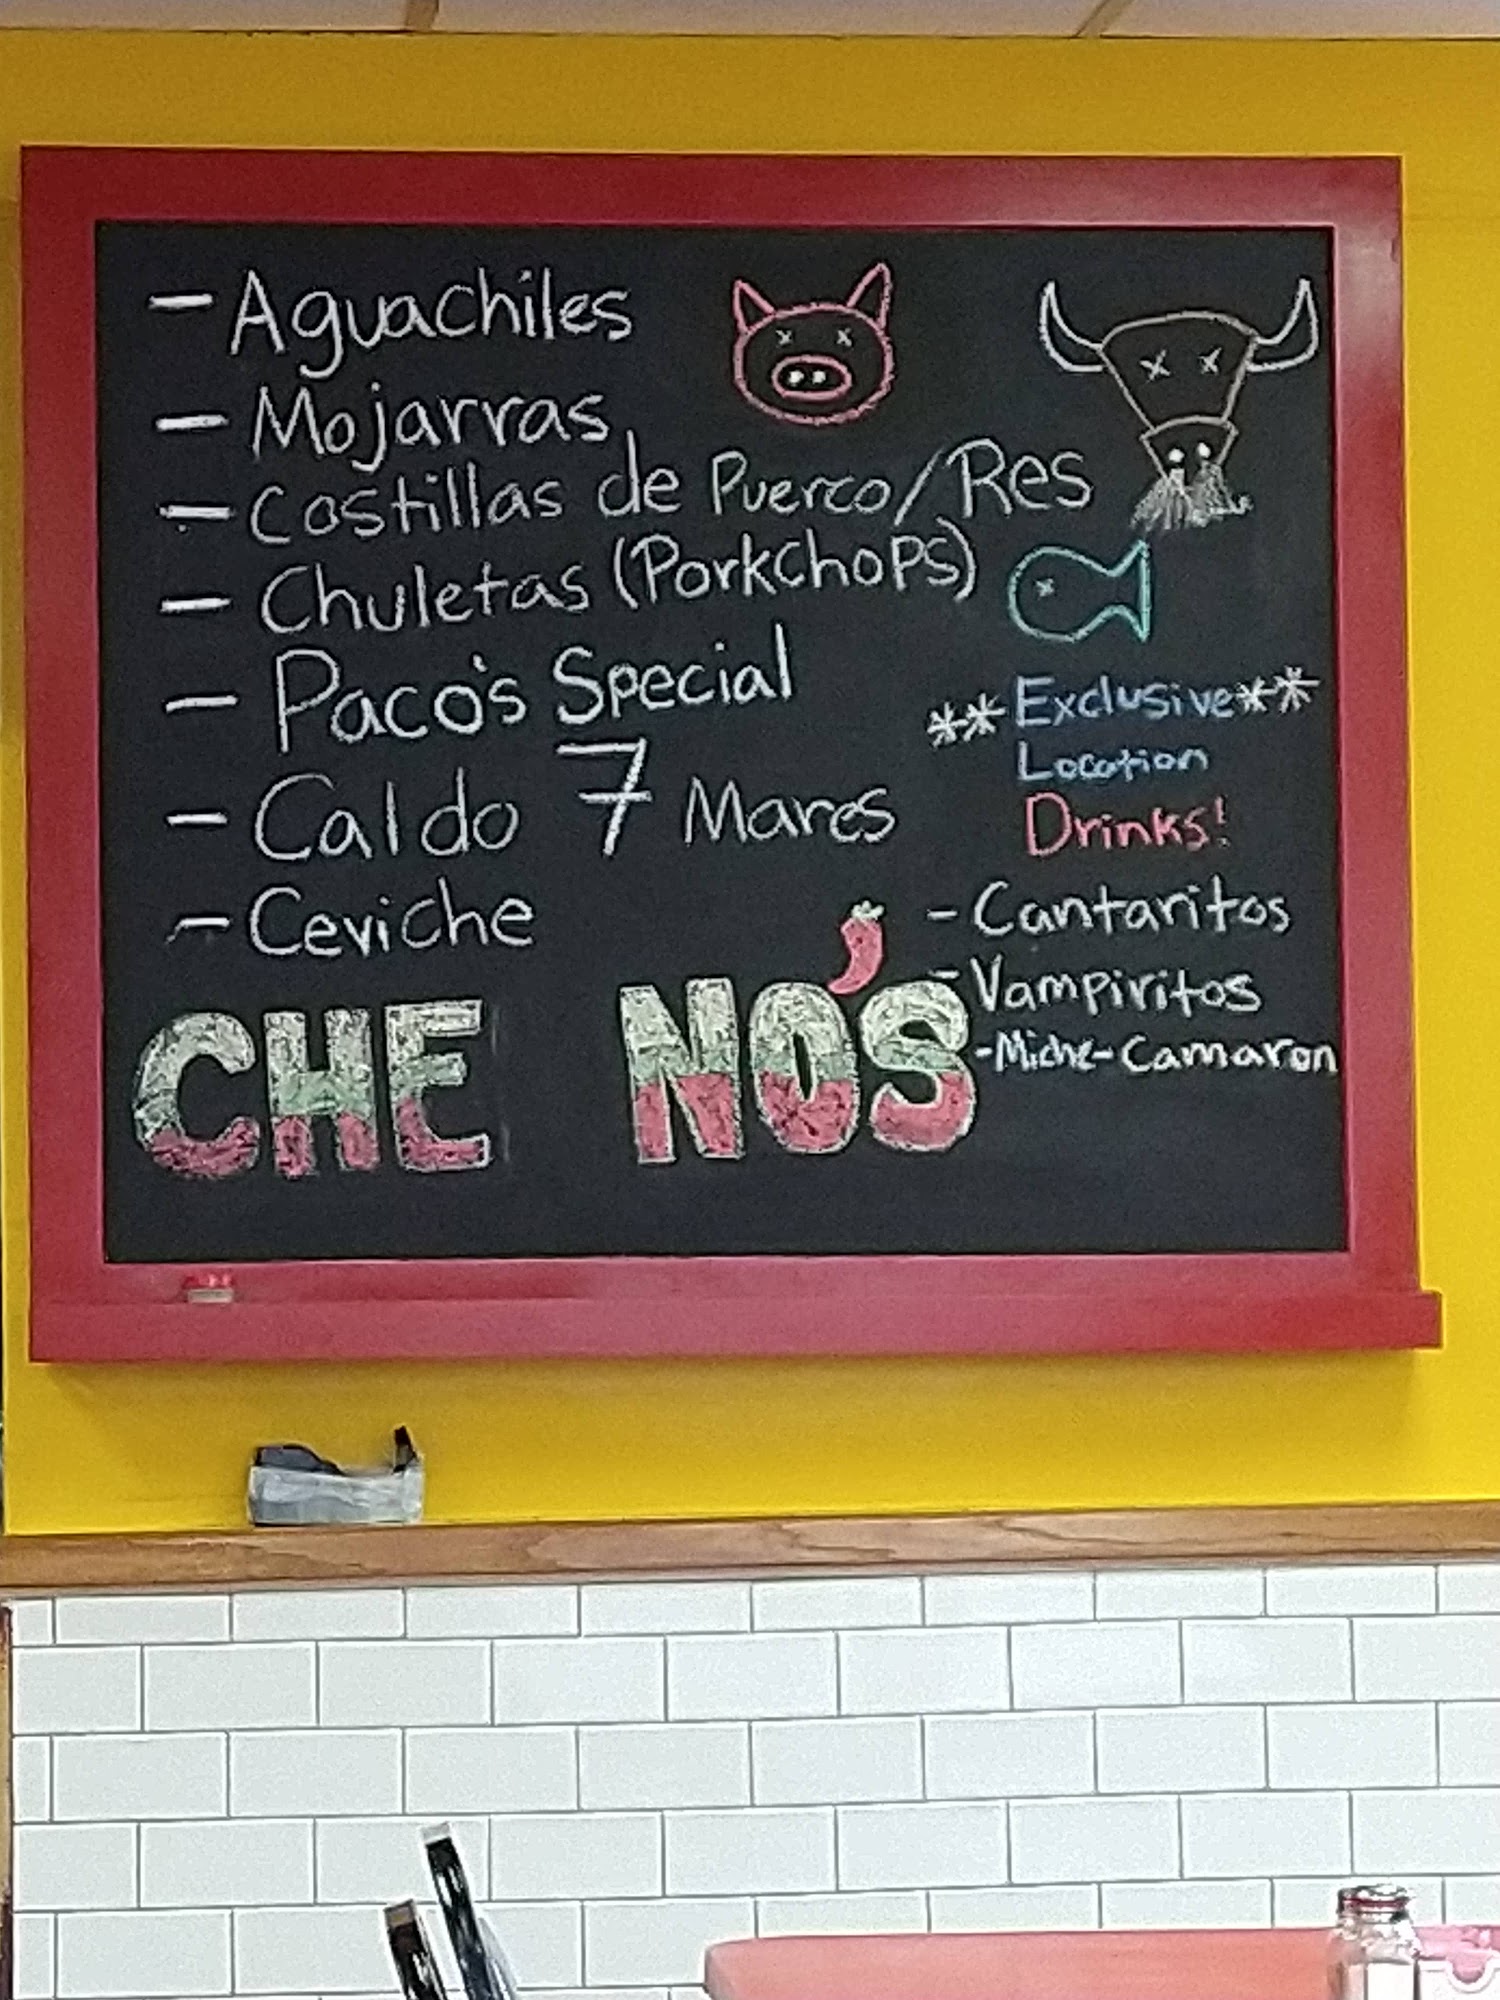 - Aguachiles
- Mojarras
- Costillas de Puerco/Res
- Chuletas (Porkchops)
- Paco's Special
- Caldo 7 Mares
- Ceviche
CHE NO'S
**Exclusive**
Location
Drinks!
- Cantaritos
- Vampiritos
- Miche-Camaron